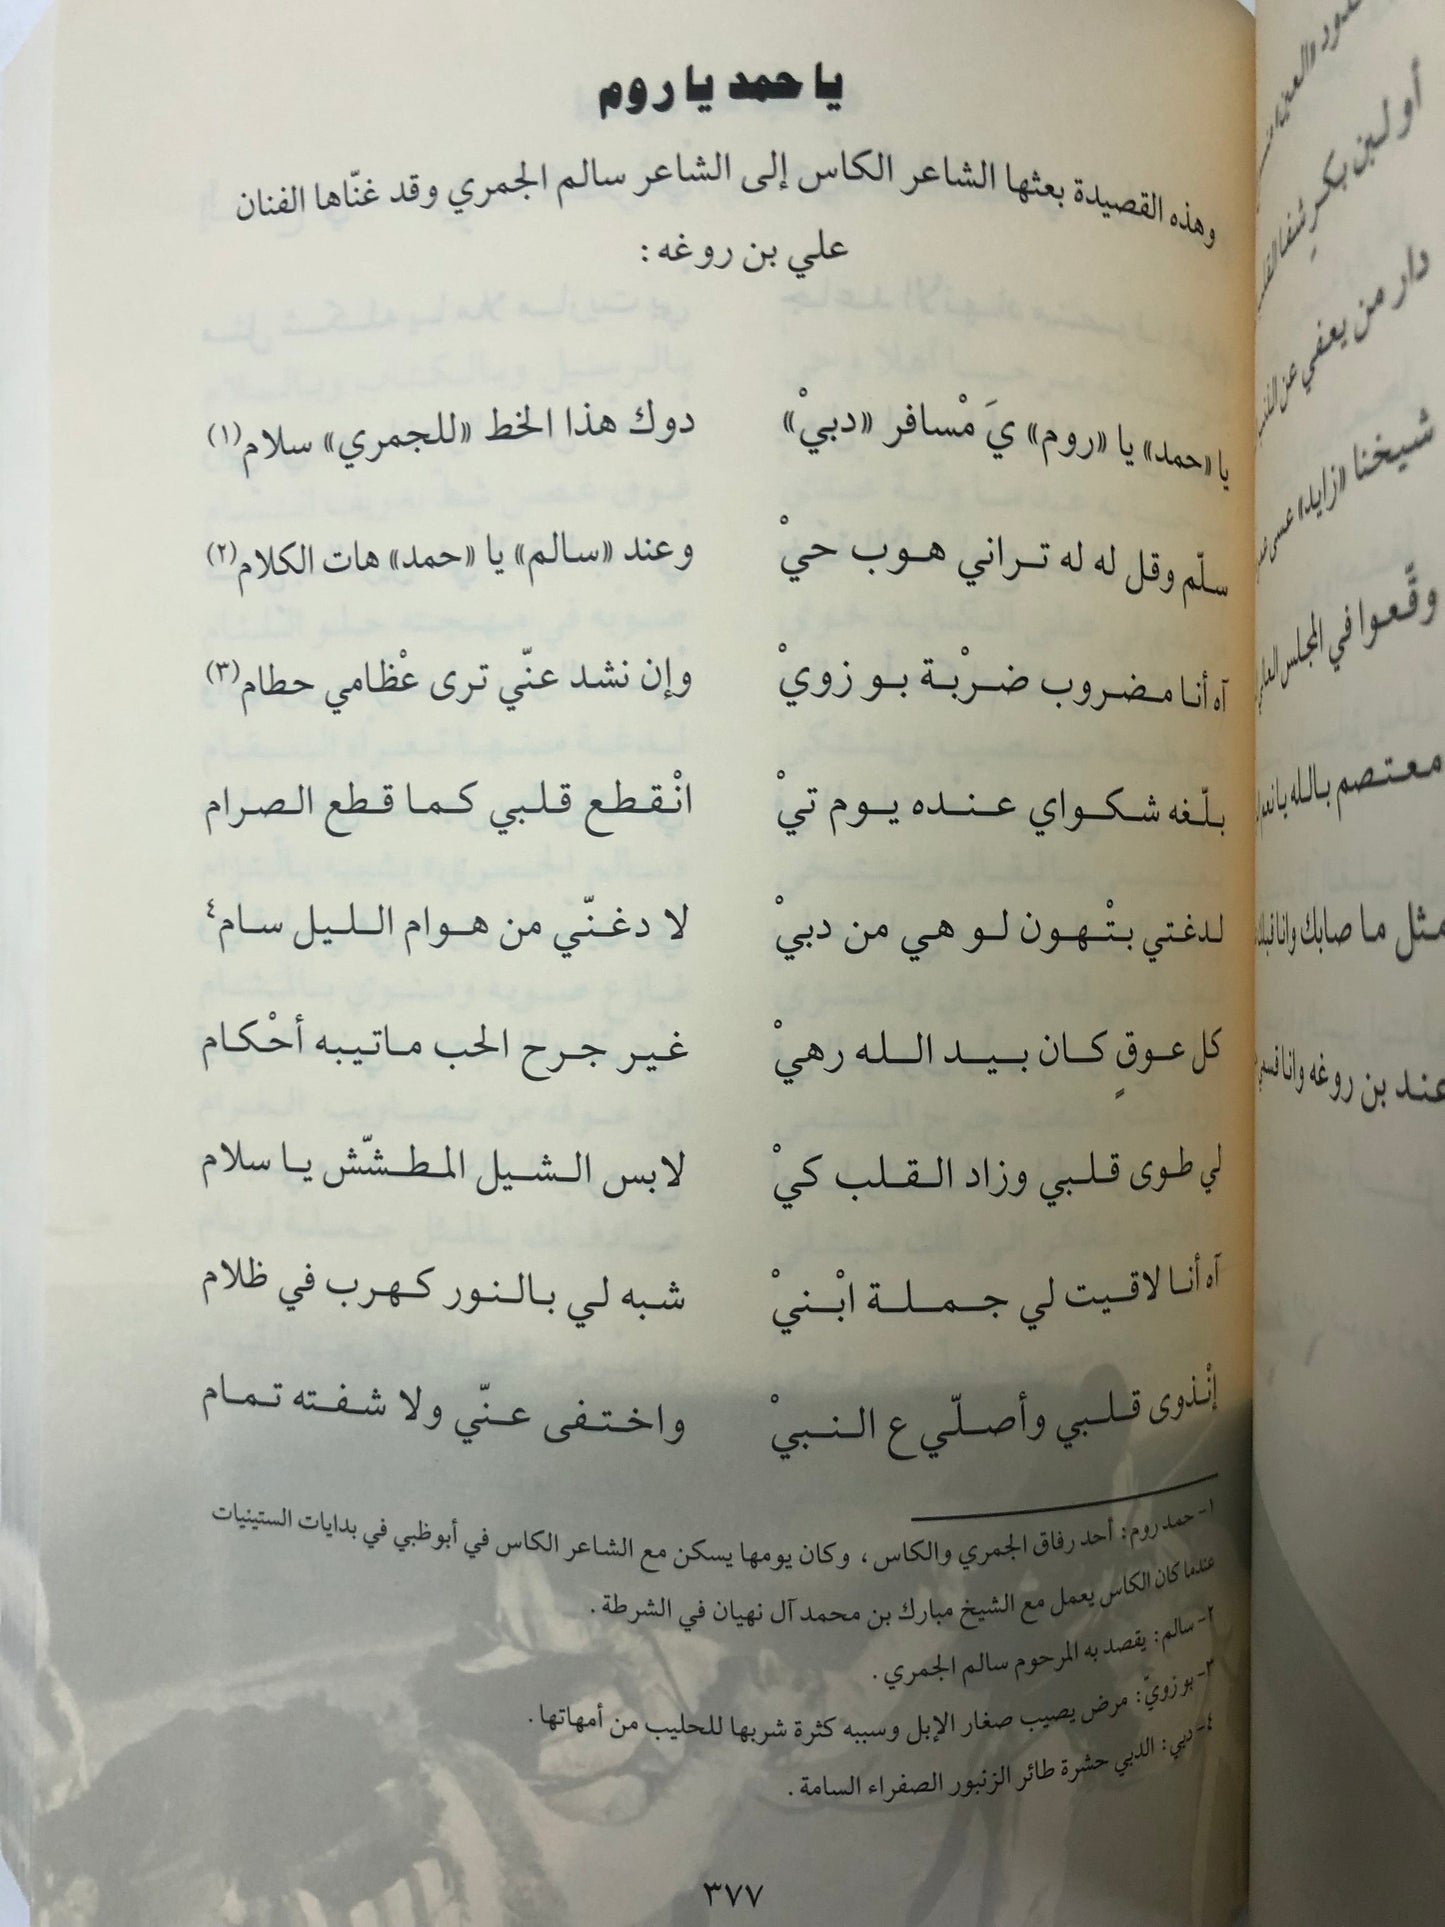 يا حمد يا روم
وهذه القصيدة بعثها الشاعر الكاس إلى الشاعر سالم الجمري وقد غنّاها الفنان
علي بن روغه :
يا «حمد» يا «روم» يَ مْسافر «دبيْ» دوك هذا الخط «للجمري» سلام(١)
سلّم وقل له له تراني هوب حيْ وعند «سالم» يا «حمد» هات الكلام(٢)
آه أنا مضروب ضرْبة بو زويْ وإن نشد عنّي ترى عْظامي حطام(٣)
بلّغه شكواي عنده يوم تيْ انْقطع قلبي كما قطع الصرام
لدغتي بتْهون لو هي من دبيْ لا دغنّي من هوام الليل سام٤
كل عوقٍ كان بيد الله رهيْ غير جرح الحب ماتيبه أحْكام
لي طوى قلبي وزاد القلب كيْ لابس الشيل المطشّش يا سلام
آه أنا لاقيت لي جملة ابْنيْ شبه لي بالنور كهرب في ظلام
إنْذوى قلبي وأصلّي ع النبيْ واختفى عنّي ولا شفته تمام
١- حمد روم: أحد رفاق الجمري والكاس، وكان يومها يسكن مع الشاعر الكاس في أبوظبي في بدايات الستينيات
عندما كان الكاس يعمل مع الشيخ مبارك بن محمد آل نهيان في الشرطة .
٢- سالم: يقصد به المرحوم سالم الجمري .
٣- بو زويّ: مرض يصيب صغار الإبل وسببه كثرة شربها للحليب من أمهاتها .
٤- دبي: الدبي حشرة طائر الزنبور الصفراء السامة .
٣٧٧
أو لبن بكرٍ شفا
دار من يعفي عن
شيخنا «زايد» عسى
وقّعوا في المجلس
معتصم بالله يا
مثل ما صابك وانا
عند بن روغه وانا